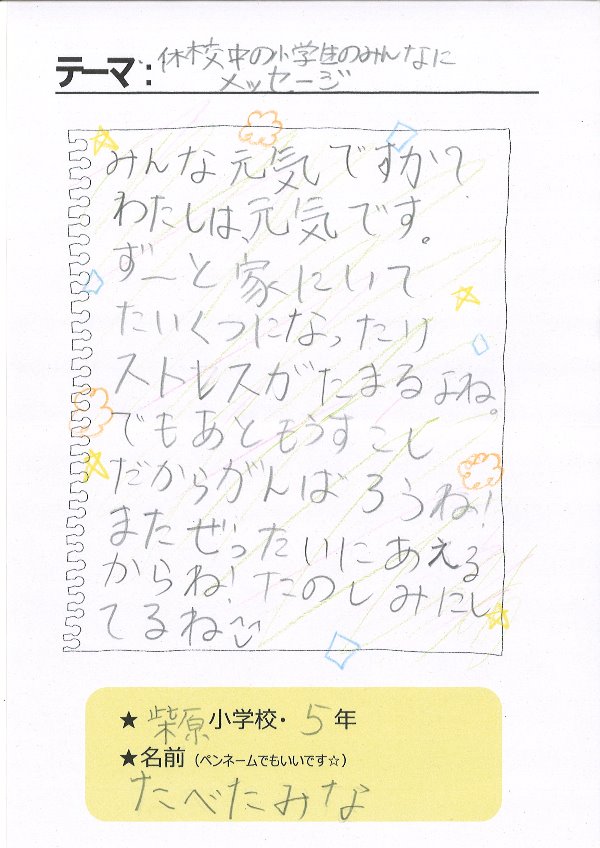 テーマ：休校中の小学生のみんなに
メッセージ
みんな元気ですか？
わたしは、元気です。
ず〜と家にいて
たいくつになったり
ストレスがたまるよね。
でもあともうすこし
だからがんばろうね！
またぜったいにあえる
からね！たのしみにし
てるね
★柴原小学校・5年
★名前（ペンネームでもいいです☆）
たべたみな